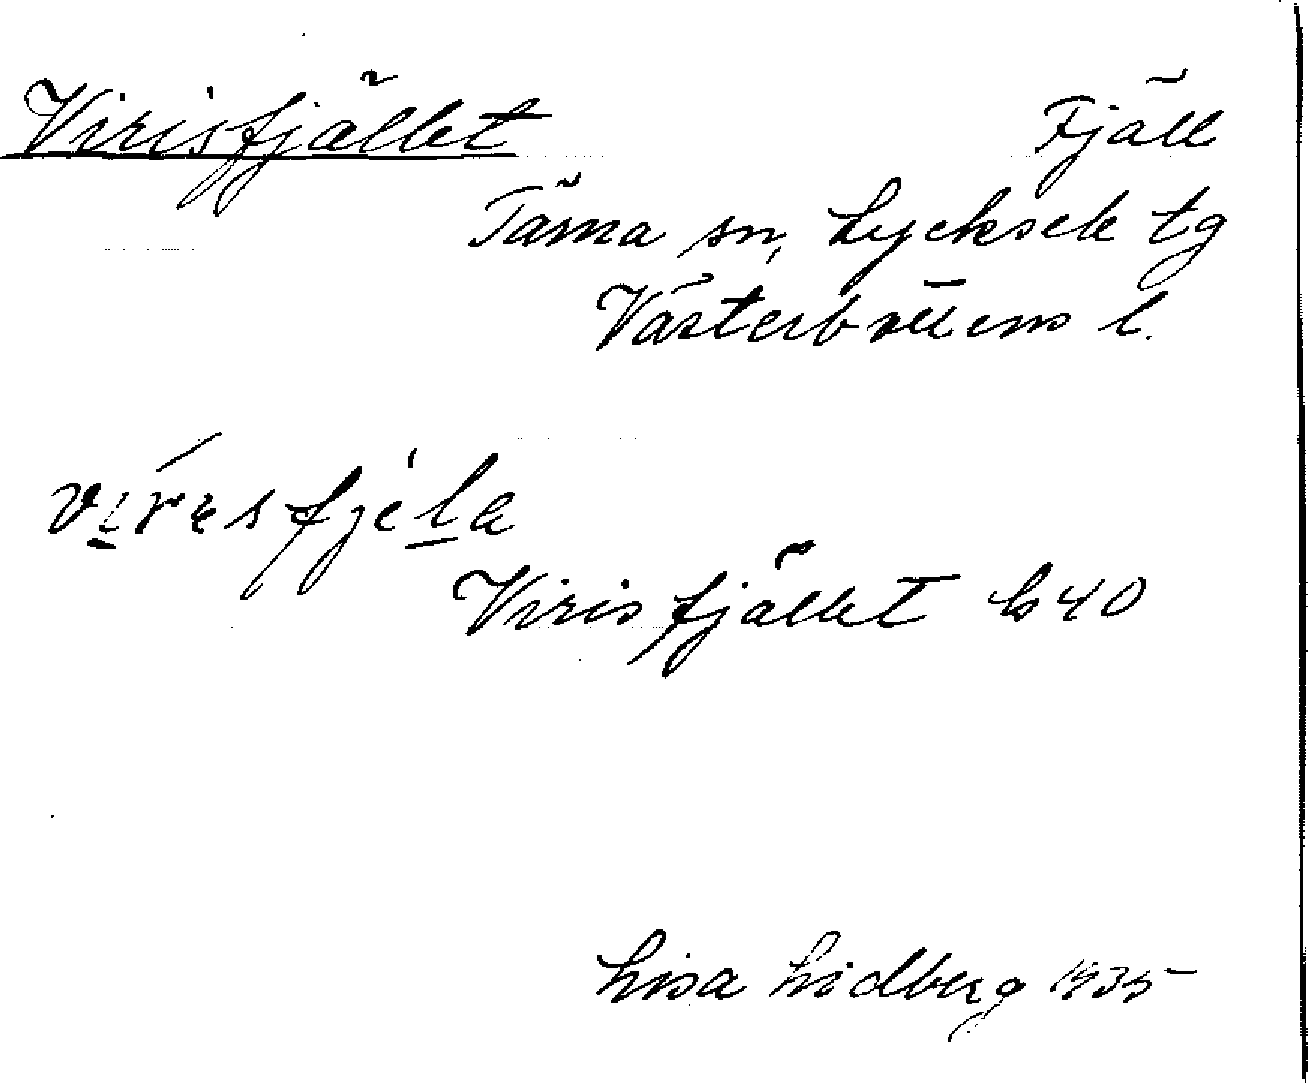 Virisfjället
Fjäll
Tärna sn, Lycksele tg
Västerbottens l.
Virisfjället k40
Lisa Lidberg 1935